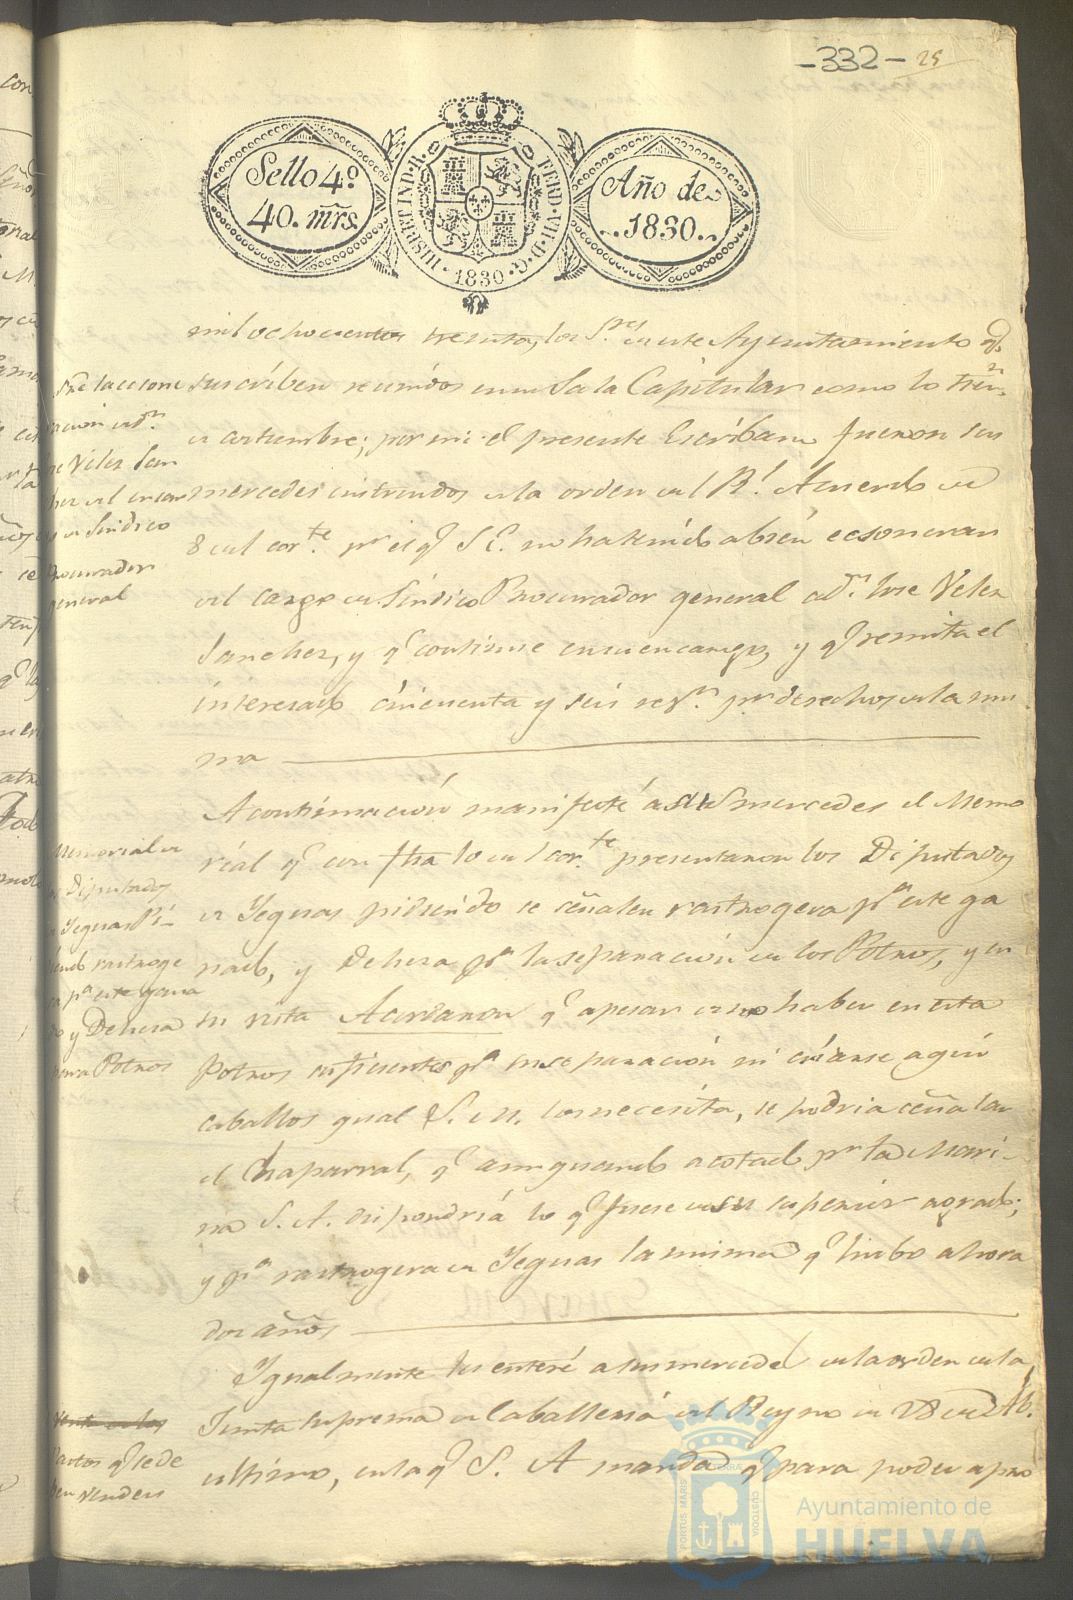 -332- 25
Sello 4º
40. mrs.
HISP. ET IND. R. FERD. VII. D. G. 1830
Año de
1830.
mil ochocientos treinta, los S.res en este Ayuntamiento q.
suscriben reunidos en su Sala Capitular como lo tien.n
de costumbre; por mi el presente Escribano fueron sus
mercedes instruidos de la orden del R.l Acuerdo de
8 del cor.te p.r el q.e S. E. no ha tenido a bien ecsonerar
del cargo de Sindico Procurador general a D.n Jose Velez
Sanchez, y q.e continue en su encargo, y q.e remita el
interesado cincuenta y seis r.s p.r derechos de la mis
ma
A continuacion manifesté a sus mercedes el Memo
rial q.e con fha 10 del cor.te presentaron los Diputados
de Yeguas pidiendo se señalen rastrogera p.a este ga
nado, y Dehesa p.a la separacion de los Potros, y en
su vista Acordaron q.e apesar de no haber en esta
Potros suficientes p.a su separacion ni criarse aqui
caballos qual S. M. los necesita, se podria señalar
el Chaparral, q.e aun quando acotado p.r la Mari-
na S. A. dispondria lo q.e fuese de su superior agrado;
y p.a rastrogera de Yeguas la misma q.e hubo ahora
dos años
Ygualmente les enteré a sus mercedes de la orden de la
Junta Suprema de Caballeria del Reyno de 28 de Ab.l
ultimo, en la q.e S. A. manda q.e para poder apro
Sre la ecsone
racion a D.n
Jose Velez San
chez del encar
go de Sindico
Procurador
general
Memorial de
los Diputados
de Yeguas Pi-
diendo rastroge
ra p.a este gana
do y Dehesa
para Potros
Venta de los
Potros q.e se de
ben vender
PORTUS MARIS ET TERRAE CUSTODIA
Ayuntamiento de
HUELVA